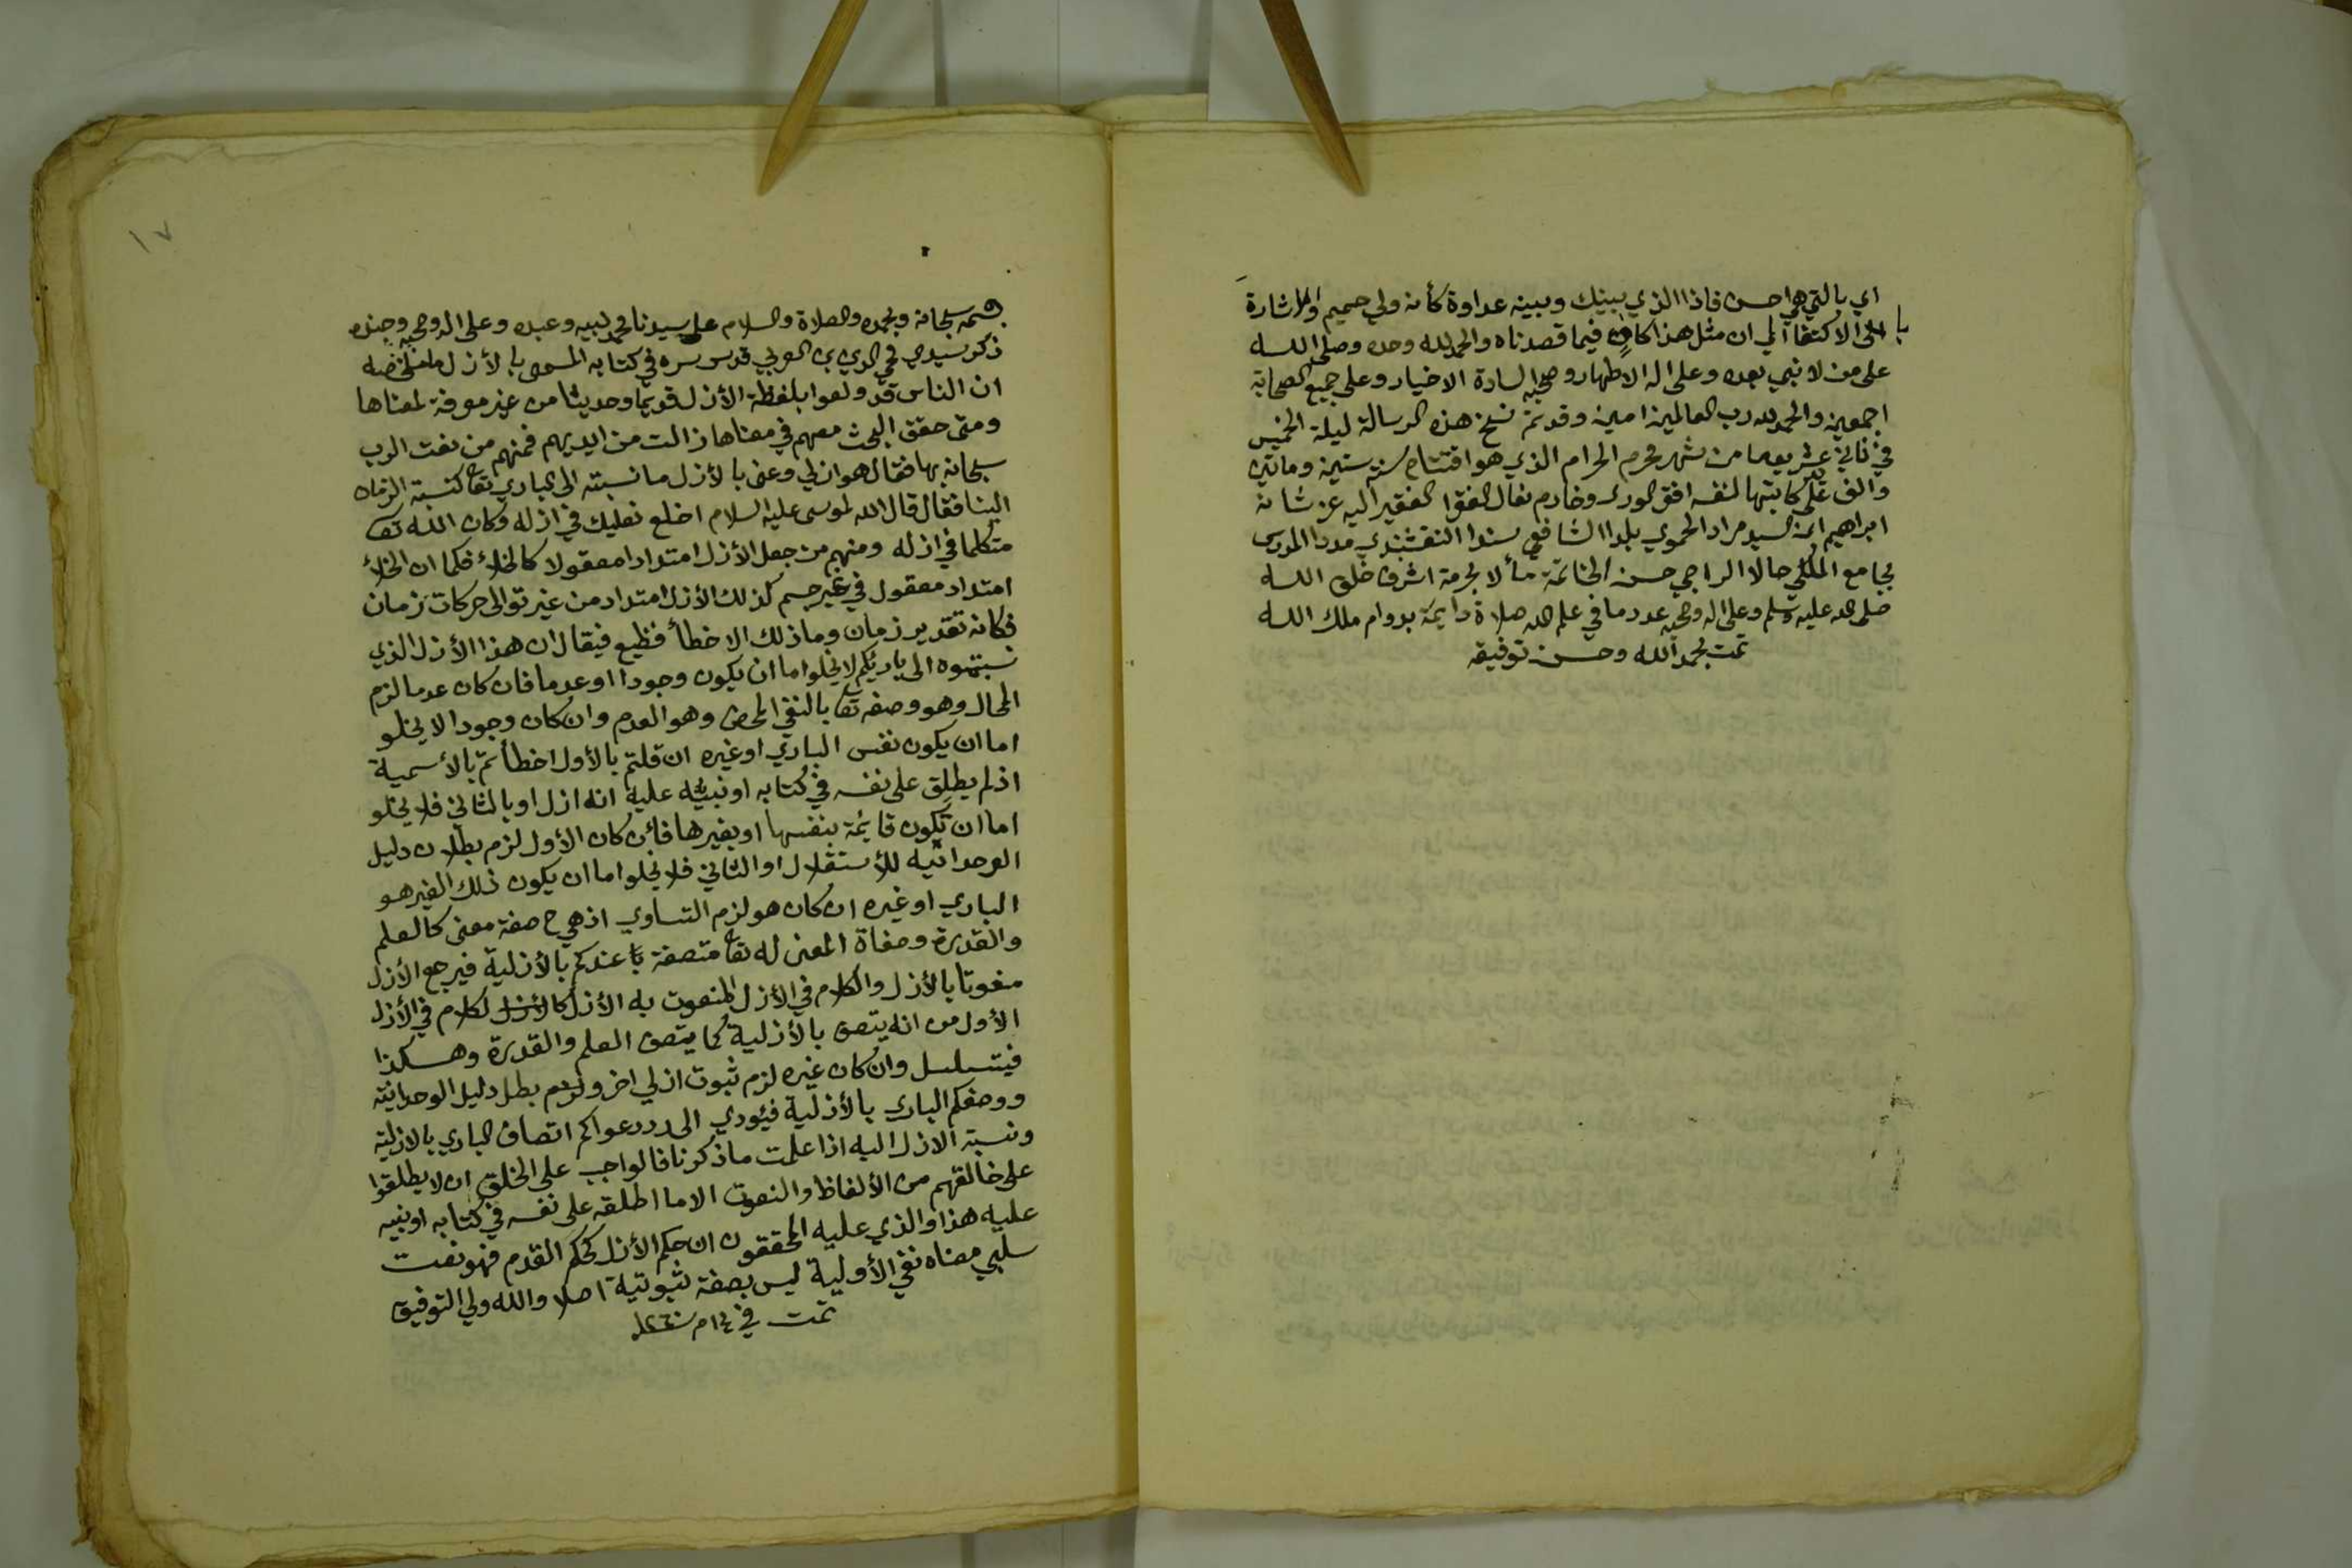 اي بالتي هي احسن فاذا الذي بينك وبينه عداوة كأنه ولي حميم والاشارة
با
الى الاكتفا الي ان مثل هذا كاف فيما قصدناه والحمد لله وحده وصلى الله
على من لا نبي بعده وعلى اله الاطهار وصحبه السادة الاخيار وعلى جميع الصحابة
اجمعين والحمد لله رب العالمين امين وقد تم نسخ هذه الرسالة ليلة الخميس
في ثاني عشر من شهر محرم الحرام الذي هو افتتاح سنة ستين ومايتين
والف على كاتبها لنفسه افقر الورى وخادم نعال الفقرا الفقير اليه عز شانه
ابراهيم ابن السيد مراد الحموي بلدا الشافعي سندا النقشبندي مددا المدرس
بجامع الملكي حالا الراجي حسن الخاتمة مألا بحرمة اشرف خلق الله
صلى الله عليه وسلم وعلى اله وصحبه عدد ما في علم الله صلاة دايمة بدوام ملك الله
تمت بحمد الله وحسن توفيقه
١٧
بسمه سبحانه وبحمده والصلاة والسلام على سيدنا محمد نبيه وعبده وعلى اله وصحبه وجنده
ذكر سيدي محي الدين بن العربي قدس سره في كتابه المسمى بالأزل ما ملخصه
ان الناس قد ولعوا بلفظة الأزل قديما وحديثا من غير معرفة لمعناها
ومتى حقق البحث معهم في معناها زالت من ايديهم فمنهم من نعت الرب
سبحانه بها فقال هو ازلي وعنى بالأزل ما نسبته الى الباري تعا كنسبة الزمان
الينا فقال قال الله لموسى عليه السلام اخلع نعليك في ازله وكان الله تعا
متكلما في ازله ومنهم من جعل الأزل امتدادا معقولا كالخلاء فكما ان الخلاء
امتداد معقول في غير جسم كذلك الأزل امتداد من غير توالى حركات زمان
فكانه تقدير زمان وما ذلك الا خطأ فظيع فيقال ان هذا الأزل الذي
نسبتموه الى باريكم لا يخلوا اما ان يكون وجودا او عدما فان كان عدما لزم
المحال وهو وصفه تعا بالنفي المحض وهو العدم وان كان وجودا لا يخلو
اما ان يكون نفس الباري او غيره ان قلتم بالأول اخطأتم بالأسمية
اذ لم يطلق على نفسه في كتابه او نبيه عليه انه ازل او بالثاني فلا يخلو
اما ان تكون قايمة بنفسها او بغيرها فأن كان الأول لزم بطلان دليل
الوحدانيه للأستقلال او الثاني فلا يخلوا اما ان يكون ذلك الغير هو
الباري او غيره ان كان هو لزم التساوي اذ هي ح صفة معنى كالعلم
والقدرة وصفاة المعنى له تعا متصفة عندكم بالأزلية فيرجع الأزل
منعوتا بالأزل والكلام في الأزل المنعوت به الأزل كالكلام في الأزل
الأول من انه يتصف بالأزلية كما يتصف العلم والقدرة وهكذا
فيتسلسل وان كان غيره لزم ثبوت ازلي اخر ولزم بطل دليل الوحدانية
ووصفكم الباري بالأزلية فيئودي الى رد دعواكم اتصاف الباري بالازلية
ونسبة الازل اليه اذا علمت ما ذكرنا فالواجب على الخلق ان لا يطلقوا
على خالقهم من الألفاظ والنعوت الا ما اطلقه على نفسه في كتابه او نبيه
عليه هذا والذي عليه المحققون ان حكم الأزل كحكم القدم فهو نعت
سلبي معناه نفي الأولية ليس بصفة ثبوتية اصلا والله ولي التوفيق
تمت في ١٤ م سنة ١٢٦٠